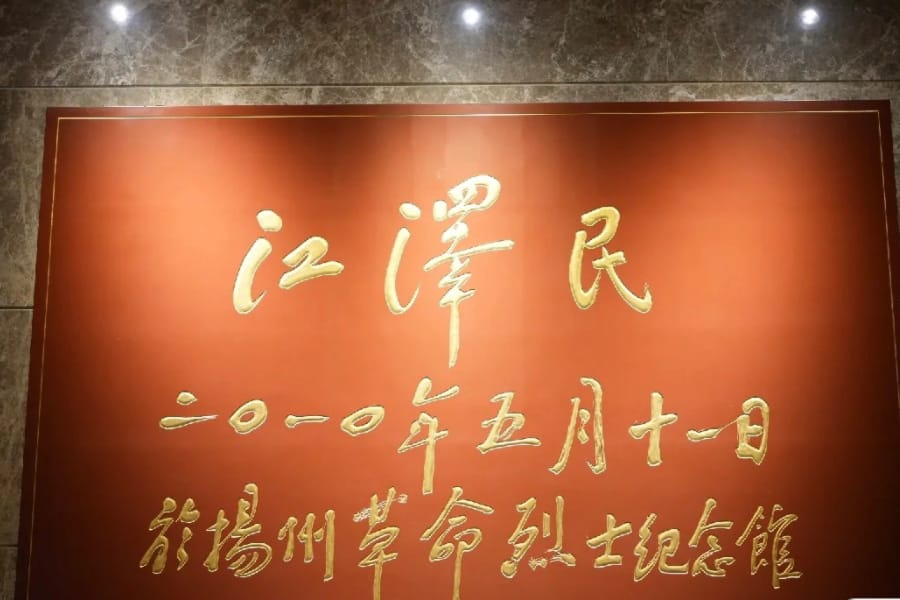 江澤民
二〇一〇年五月十一日
於揚州革命烈士纪念館